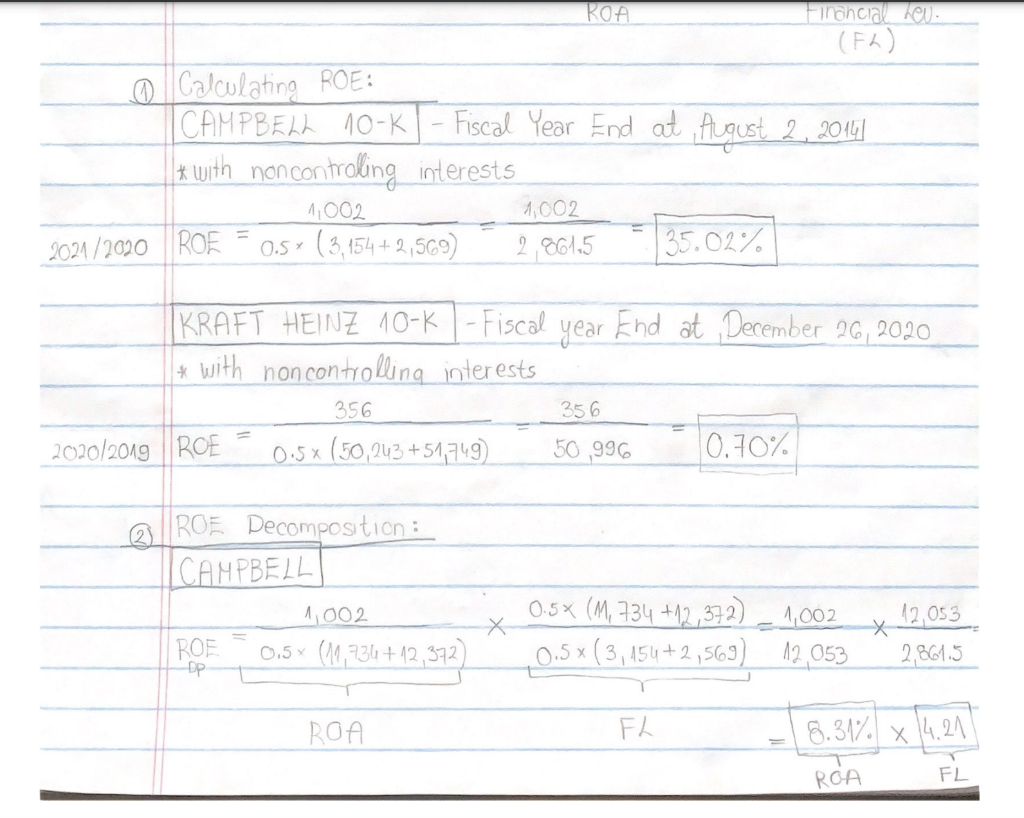 ROA Financial Lev.
(FL)
① Calculating ROE:
CAMPBELL 10-K - Fiscal Year End at August 2, 2014
* with noncontroling interests
2021/2020 ROE = 1,002 / 0.5 × (3,154+2,569) = 1,002 / 2,861.5 = 35.02%
KRAFT HEINZ 10-K - Fiscal year End at December 26, 2020
* with noncontrolling interests
2020/2019 ROE = 356 / 0.5 × (50,243+51,749) = 356 / 50,996 = 0.70%
② ROE Decomposition:
CAMPBELL
ROE DP = 1,002 / 0.5 × (11,734+12,372) × 0.5 × (11,734+12,372) / 0.5 × (3,154+2,569) = 1,002 / 12,053 × 12,053 / 2,861.5 =
ROA FL = 8.31% × 4.21
ROA FL